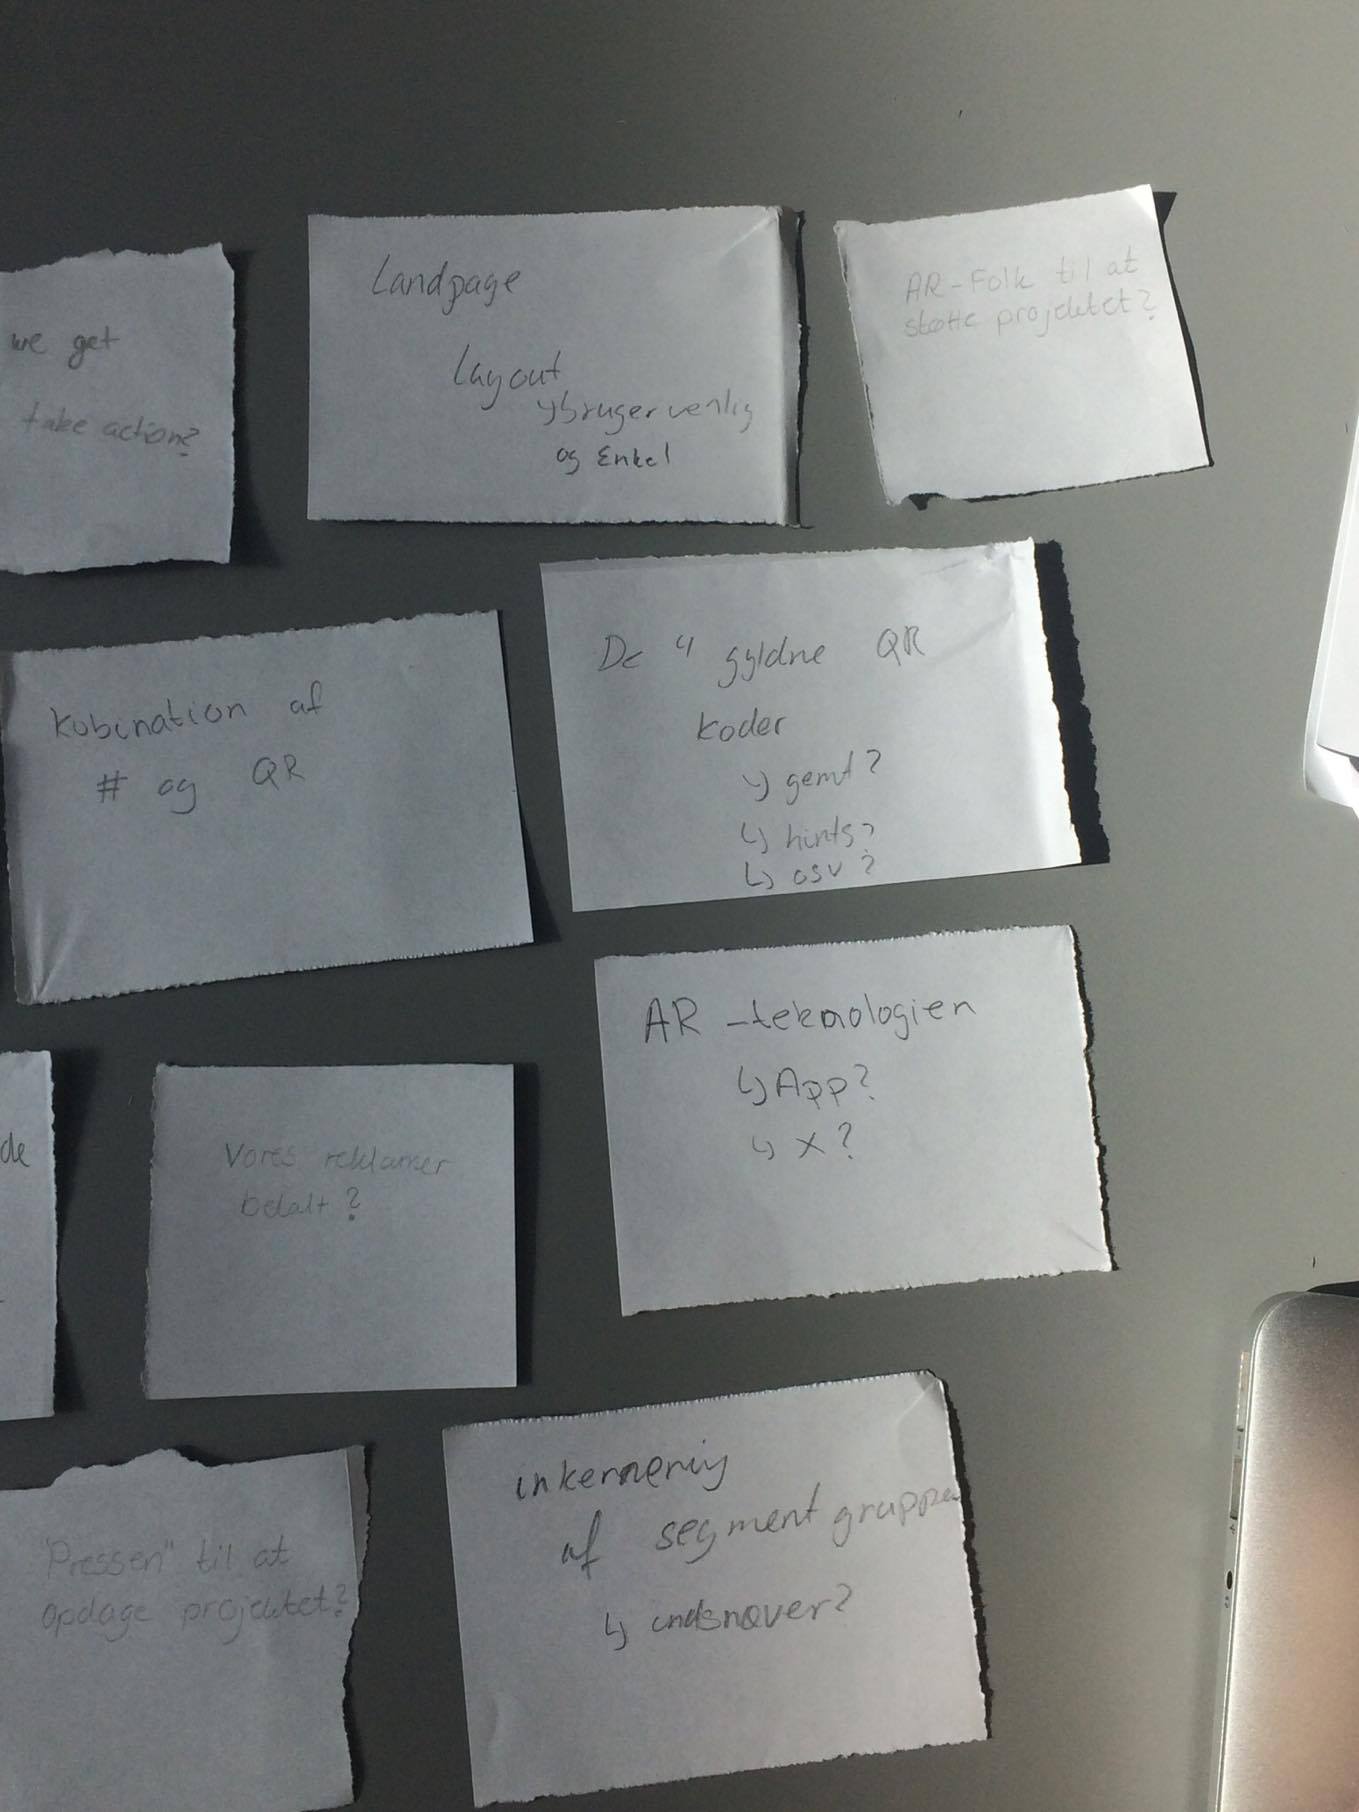 we get
take action?
Landpage
Layout
↳ brugervenlig
og Enkel
AR-Folk til at
støtte projektet?
Kobination af
# og QR
De 4 gyldne QR
koder
↳ gemt?
↳ hints?
↳ osv?
de
Vores reklamer
betalt?
AR-teknologien
↳ App?
↳ X?
"Pressen" til at
Opdage projektet?
af segment gruppen
↳ indsnæver?